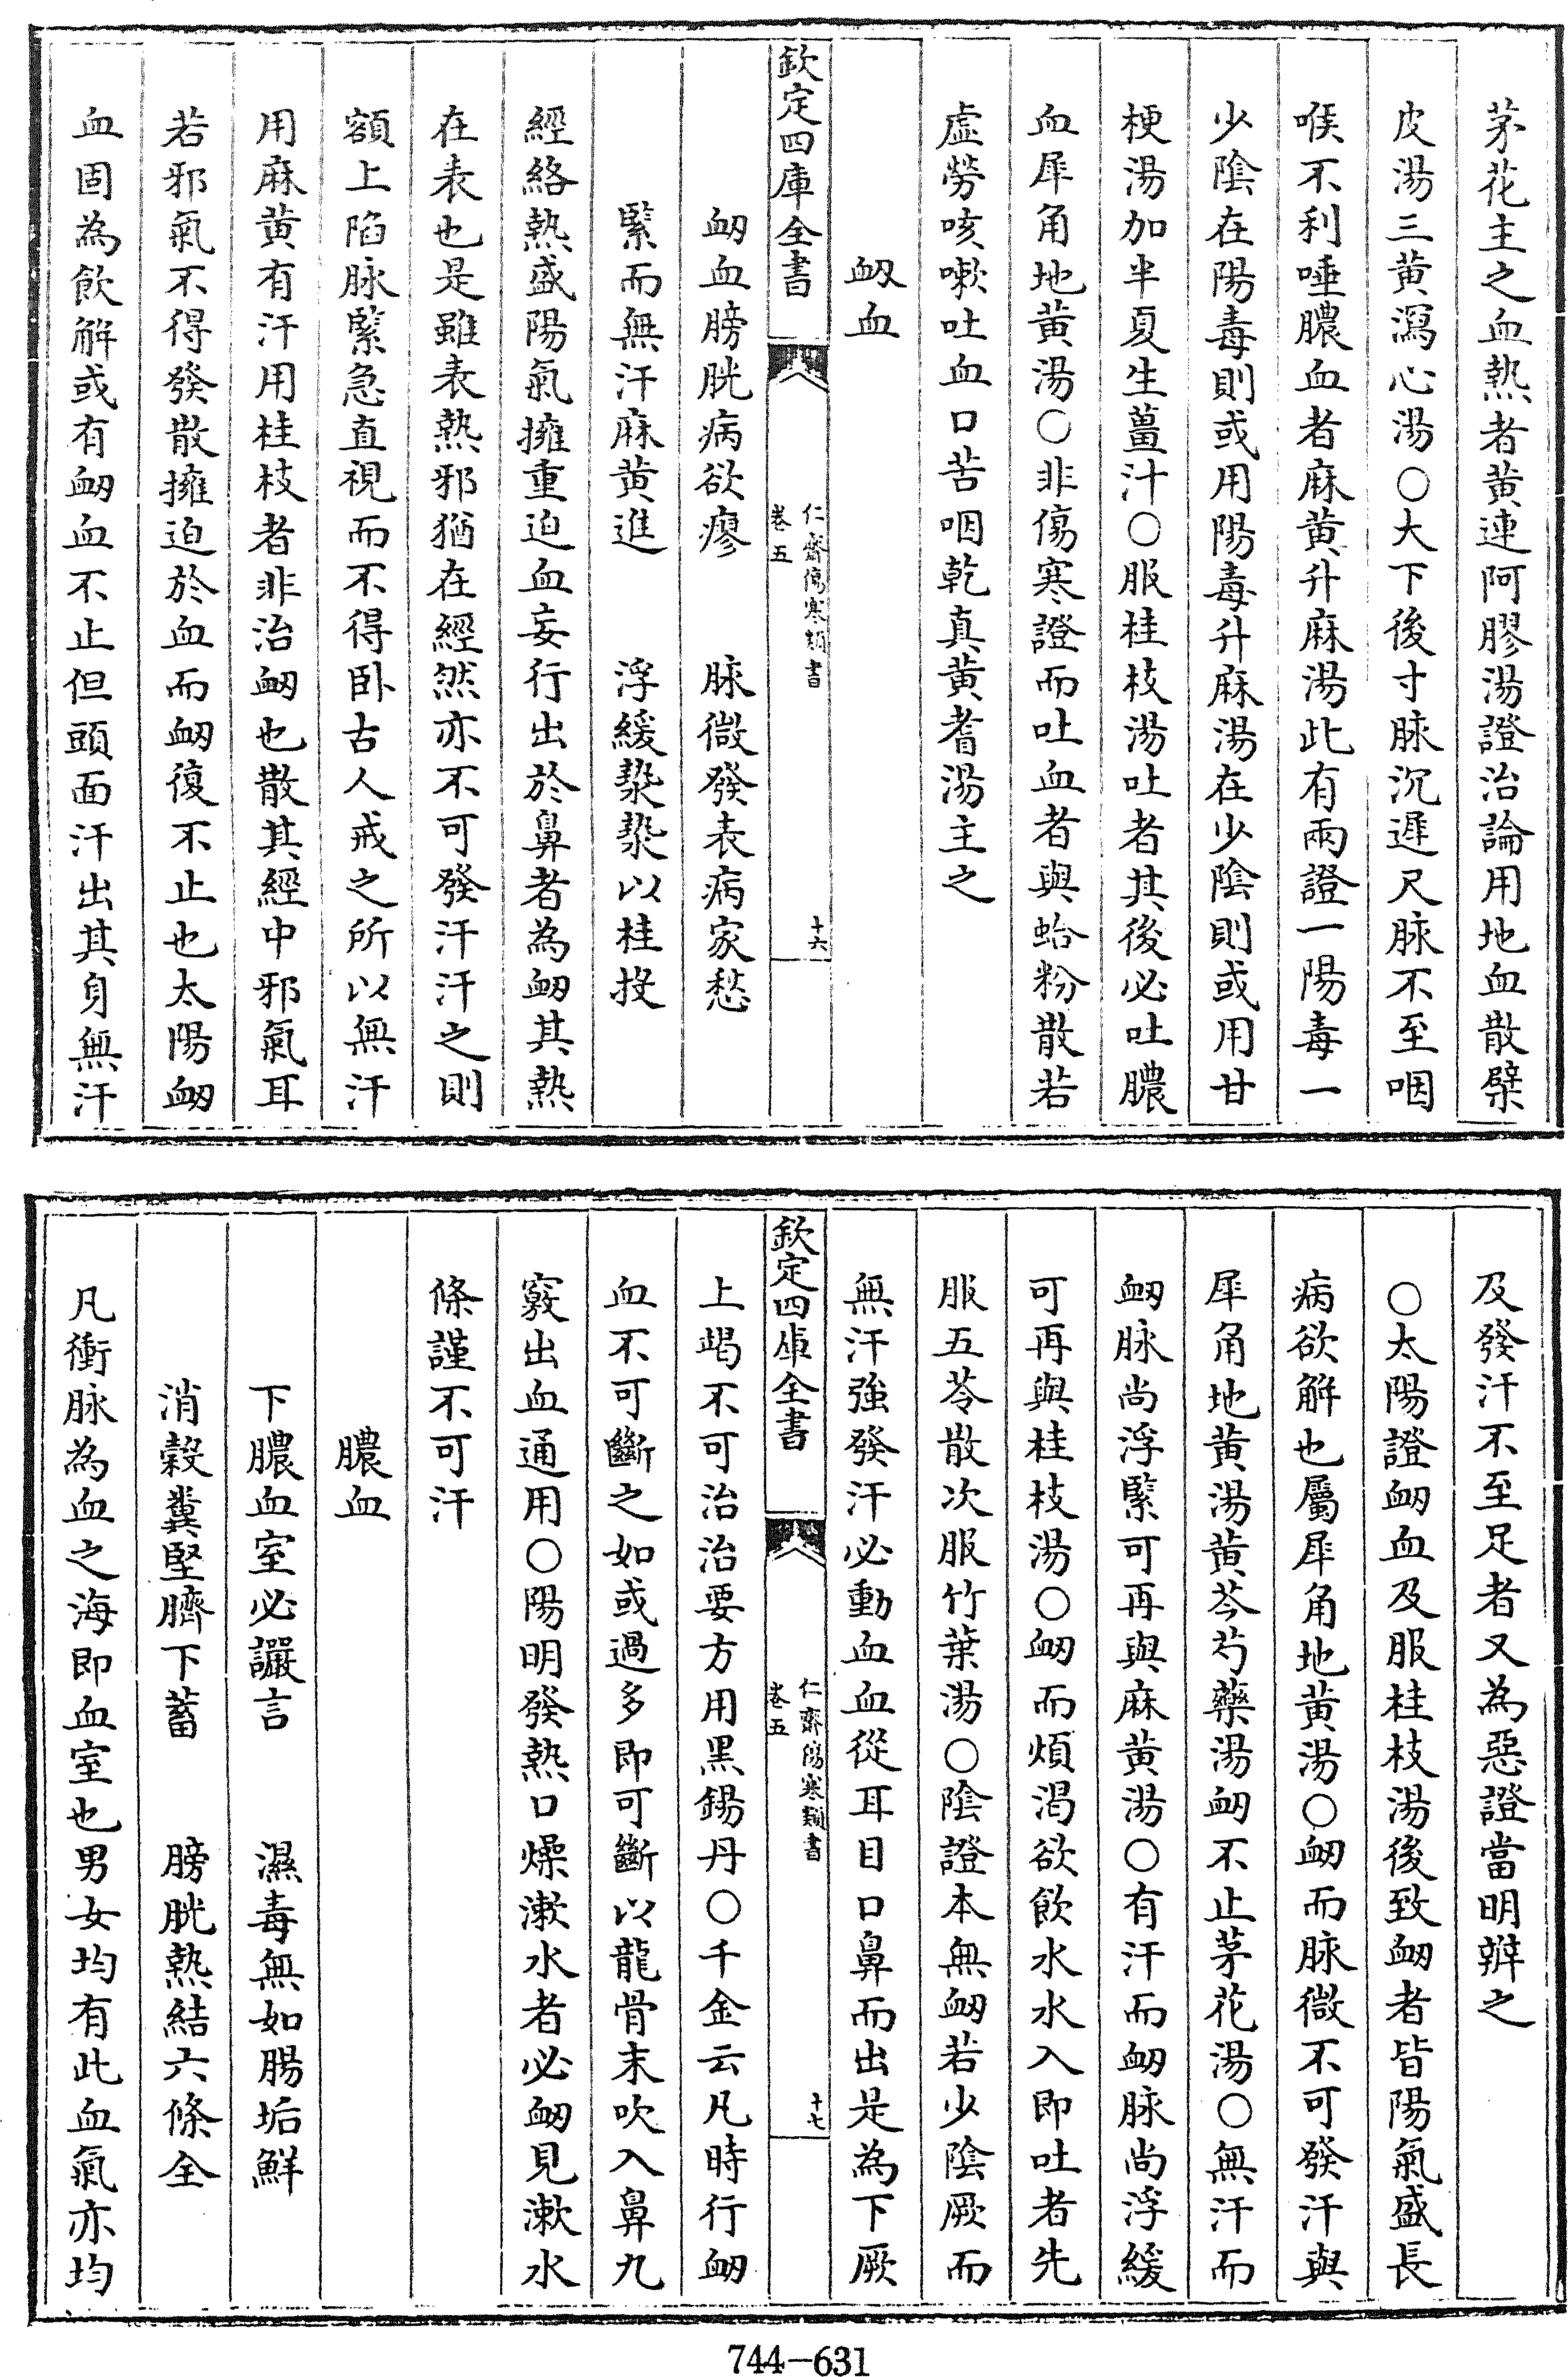 茅花主之血熱者黄連阿膠湯證治論用地血散檗
皮湯三黄瀉心湯○大下後寸脉沉遲尺脉不至咽
喉不利唾膿血者麻黄升麻湯此有兩證一陽毒一
少陰在陽毒則或用陽毒升麻湯在少陰則或用甘
梗湯加半夏生薑汁○服桂枝湯吐者其後必吐膿
血犀角地黄湯○非傷寒證而吐血者與蛤粉散若
虛勞咳嗽吐血口苦咽乾真黄耆湯主之
衂血
欽定四庫全書
仁齋傷寒類書
卷五
十六
衂血膀胱病欲瘳　脉微發表病家愁
緊而無汗麻黄進　浮緩漐漐以桂投
經絡熱盛陽氣擁重迫血妄行出於鼻者為衂其熱
在表也是雖表熱邪猶在經然亦不可發汗汗之則
額上陷脉緊急直視而不得卧古人戒之所以無汗
用麻黄有汗用桂枝者非治衂也散其經中邪氣耳
若邪氣不得發散擁迫於血而衂復不止也太陽衂
血固為飲解或有衂血不止但頭面汗出其身無汗
及發汗不至足者又為惡證當明辨之
○太陽證衂血及服桂枝湯後致衂者皆陽氣盛長
病欲解也屬犀角地黄湯○衂而脉微不可發汗與
犀角地黄湯黄芩芍藥湯衂不止茅花湯○無汗而
衂脉尚浮緊可再與麻黄湯○有汗而衂脉尚浮緩
可再與桂枝湯○衂而煩渇欲飲水水入即吐者先
服五苓散次服竹葉湯○陰證本無衂若少陰厥而
無汗強發汗必動血血從耳目口鼻而出是為下厥
欽定四庫全書
仁齋傷寒類書
卷五
十七
上竭不可治治要方用黑錫丹○千金云凡時行衂
血不可斷之如或過多即可斷以龍骨末吹入鼻九
竅出血通用○陽明發熱口燥漱水者必衂見漱水
條謹不可汗
膿血
下膿血室必讝言　濕毒無如腸垢鮮
消榖糞堅臍下蓄　膀胱熱結六條全
凡衝脉為血之海即血室也男女均有此血氣亦均
744-631